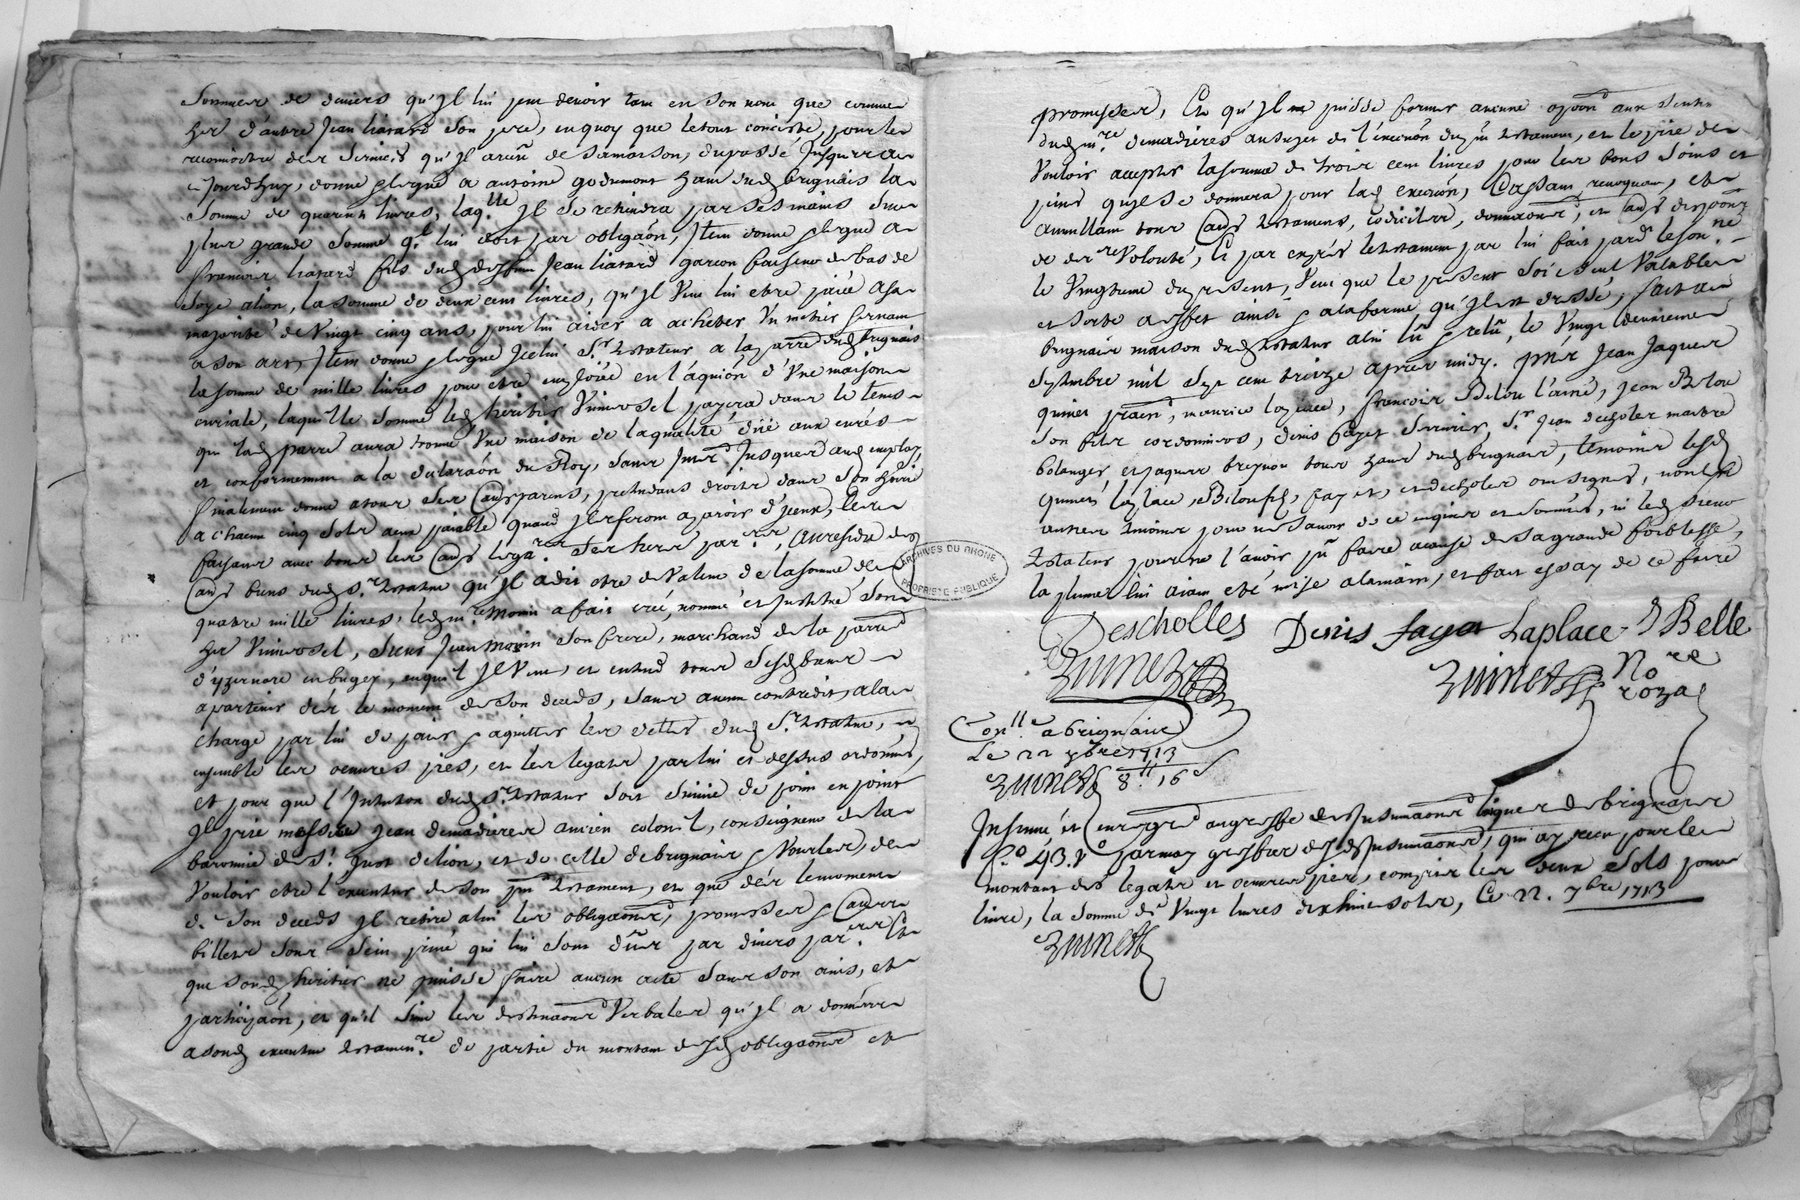 Sommes de deniers qu'jl lui peut devoir tant en son nom que comme
her d'autre Jean liatard son pere, en quoy que le tout conciste, pour les
reconnoitre des services qu'jl a
jourdhuy, donne & legue a antoine godemont hant dud brignais la
somme de quarente livres, laq.lle jl se retiendra par ses mains
plus grande somme q'l lui doit par obligâon, Jtem donne & legue a
francois liatard fils dud Jean liatard garcon faiseur de bas de
soye alion, la somme de deux cent livres, qu'jl veut lui etre paiée a sa
majorité de vingt cinq ans, pour lui aider a acheter un metier servant
a son art, Jtem donne & legue Jcelui S.r testateur a la parr.e dud brignais
la somme de mille livres pour etre emploiée en l'aquiôn d'une maison
curiale, laquelle somme led heritier universel payera dans le tems
que lad parre aura trouvé une maison de la qualité düe aux curés
et conformement a la declaraôn du Roy, sans Jnter.t Jusques aud employ,
finalement donne a tous ses aus parens, pretendans droits dans son hoirie
a chacun cinq sols aux paiable quand jls seront aparois d'jceux, les
faisant avec tous les aus lega.res ses heres par.res, Au residu des
aus biens dud S.r testateur qu'jl a dit etre de valeur de la somme de
quatre mille livres, led m.re Morin a fait creé, nommé et Jnstitué son
her universel, sieur Jean Morin son frere, marchand de la parre
d'yzernore en bugey, auquel jl veut, et entend tous sesd biens
apartenir des le moment de son deceds, sans aucun contredit, a la
charge par lui de paier & aquitter les dettes dud S.r testateur,
ensemble les oeuvres pies, et les legats par lui ci dessus ordonnés,
et pour que l'Jntention dud S.r testateur soit suivie de point en point
jl prie messire Jean demadieres ancien colon.l, conseigneur de la
baronnie de S.t Just de lion, et de celle de brignais & Vourles, de
vouloir etre l'executeur de son pnt testament, et que des le moment
de son deceds jl retire alui les obligaôns, promesses & aus
billets sous sein privé qui lui sont dûs par divers par.ers Et
que sond heritier ne puisse faire aucun acte sans son avis, et
participaôn, et qu'il suive les destinaôns verbales qu'jl a données
a sond executeur testamen.re de partie du montant desd obligaôns et
promesses, Et qu'jl ne puisse former aucune opoôn aux
dud m.re demadieres au sujet de l'execuôn du pnt testament, et le prie de
vouloir accepter la somme de trois cent livres pour les bons soins et
peines qu'jl se donnera pour lad execuôn, Cassant, revoquant, et
annullant tous aus testamens, codicilles, donnaôns, et aus disposôns
de der.re volonté, Et par exprés le testament par lui fait pard le son.né
le vingtieme du present, veut que le present soit seul valable
et sorte a effet ainsi & a la forme qu'jl est dressé, fait au
brignais maison dud testateur a lui lû & relû, le vingt deuxieme
septembre mil sept cent treize aprés midy. pnts Jean Jaques
quinet praen, maurice laplace, francois Belou l'ainé, Jean Belou
son fils cordonniers, denis fayet serrurier, S.r Jean decholes maitre
bolanger, et Jaques breynou tous hans dud brignais, temoins lesd
quinet, laplace, Belou fils, fayet, et decholes ont signés, non les
autres temoins pour ne savoir de ce enquis et sommés, ni led sieur
testateur pour ne l'avoir pû faire acause de sa grande foiblesse,
la plume lui aiant eté mise alamain, et fait essay de ce faire
Descholles Denis fayet Laplace J Belle
Quinet Quinet No.re roza
Con.ll a brignais
Le 22 7bre 1713
Quinet 8.ll 16 s
Jnsinué et Enregré au greffe des Jnsinuaôns laiques de brignais
f.o 43. v.o par moy greffier desd Jnsinuaôns, qui ay receu pour le
montant des legats et oeuvres pies, compris les deux sols pour
livre, la somme de vingt livres dix huit sols, Ce 22. 7bre 1713
Quinet
ARCHIVES DU RHONE
PROPRIETE PUBLIQUE